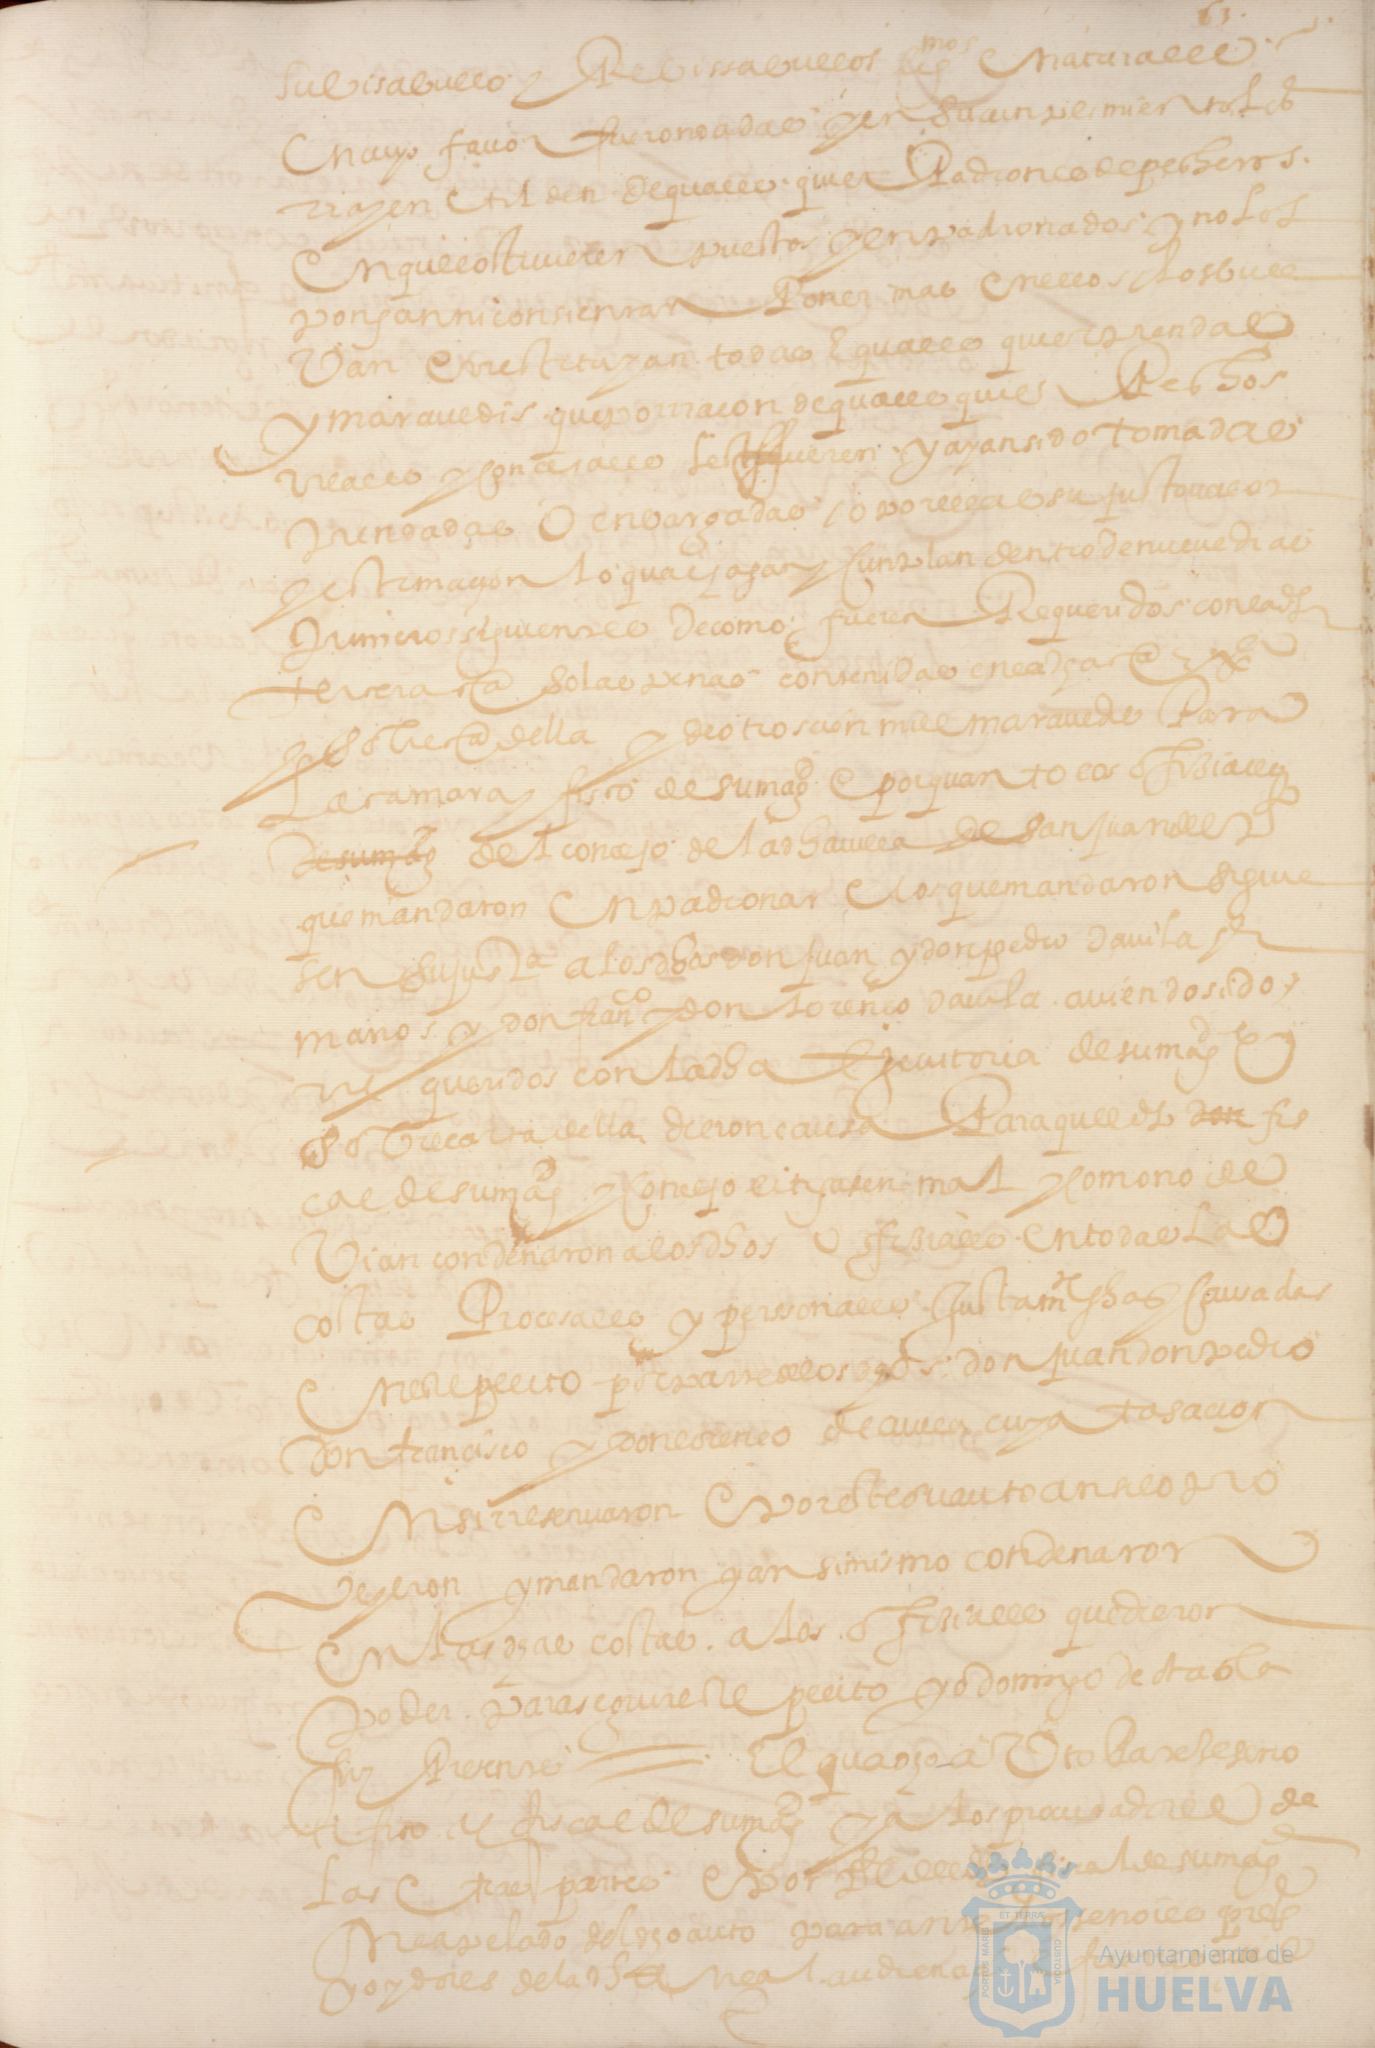 63.
subisabuelo y Rebissabuelos legmos e naturales
En cuyo favor fueron dadas y en su cunplimiento los
rrayen e tilden de quales quier Padrones de pecheros
En que estuvieren puestos y enpadronados y no los
pongan ni consientan Poner mas en ellos y los buel
Van e rrestituyan todas e quales quier prendas
y maravedis que por rraçon de quales quier Pechos
rreales y conçexales les fueren y ayan sido tomadas
prendadas O enbargadas o por ellas su justo valor
y estimaçion lo qual hagan y cunplan dentro de nueve dias
primeros siguientes de como fueren Requeridos con la dha
terçera carta so las penas contenidas en la dha carta
y sobrecarta della y de otros cien mill maravedis Para
La camara y fisco de su magd E por quanto los offiçiales
de su magd del conçejo de la dha villa de san juan del pto
que mandaron Enpadronar E los que mandaron siguie
sen su justa a los dhos don Juan y don pedro davila her
manos y don franco y don Lorenço davila aviendo sido
rre queridos con la dha Executoria de su magd E
Sobrecarta della dieron causa Para quel dho don fis
cal de su magd y conçejo litigasen mal y como no de
Vian condenaron a los dhos offiçiales En todas Las
costas Proçesales y personales justamte fhas y causadas
En este pleito por parte de los dhos don juan don pedro
don françisco y don lorenço de avila cuya tasaçion
En si rreservaron E por este su auto ansi lo pro
veyeron y mandaron y ansimismo condenaron
En las dhas costas a los offiçiales que dieron
poder para seguir este pleito yo domingo de tabla
fuy Presente El qual dho auto Paresçe se no
tifico al fiscal de su magd y a los procuradores de
Las otras partes E por el dho fiscal de su magd
fue apelado del dho auto para ante los señores presidte
y oydores de la dha rreal audiençia
Ayuntamiento de
HUELVA